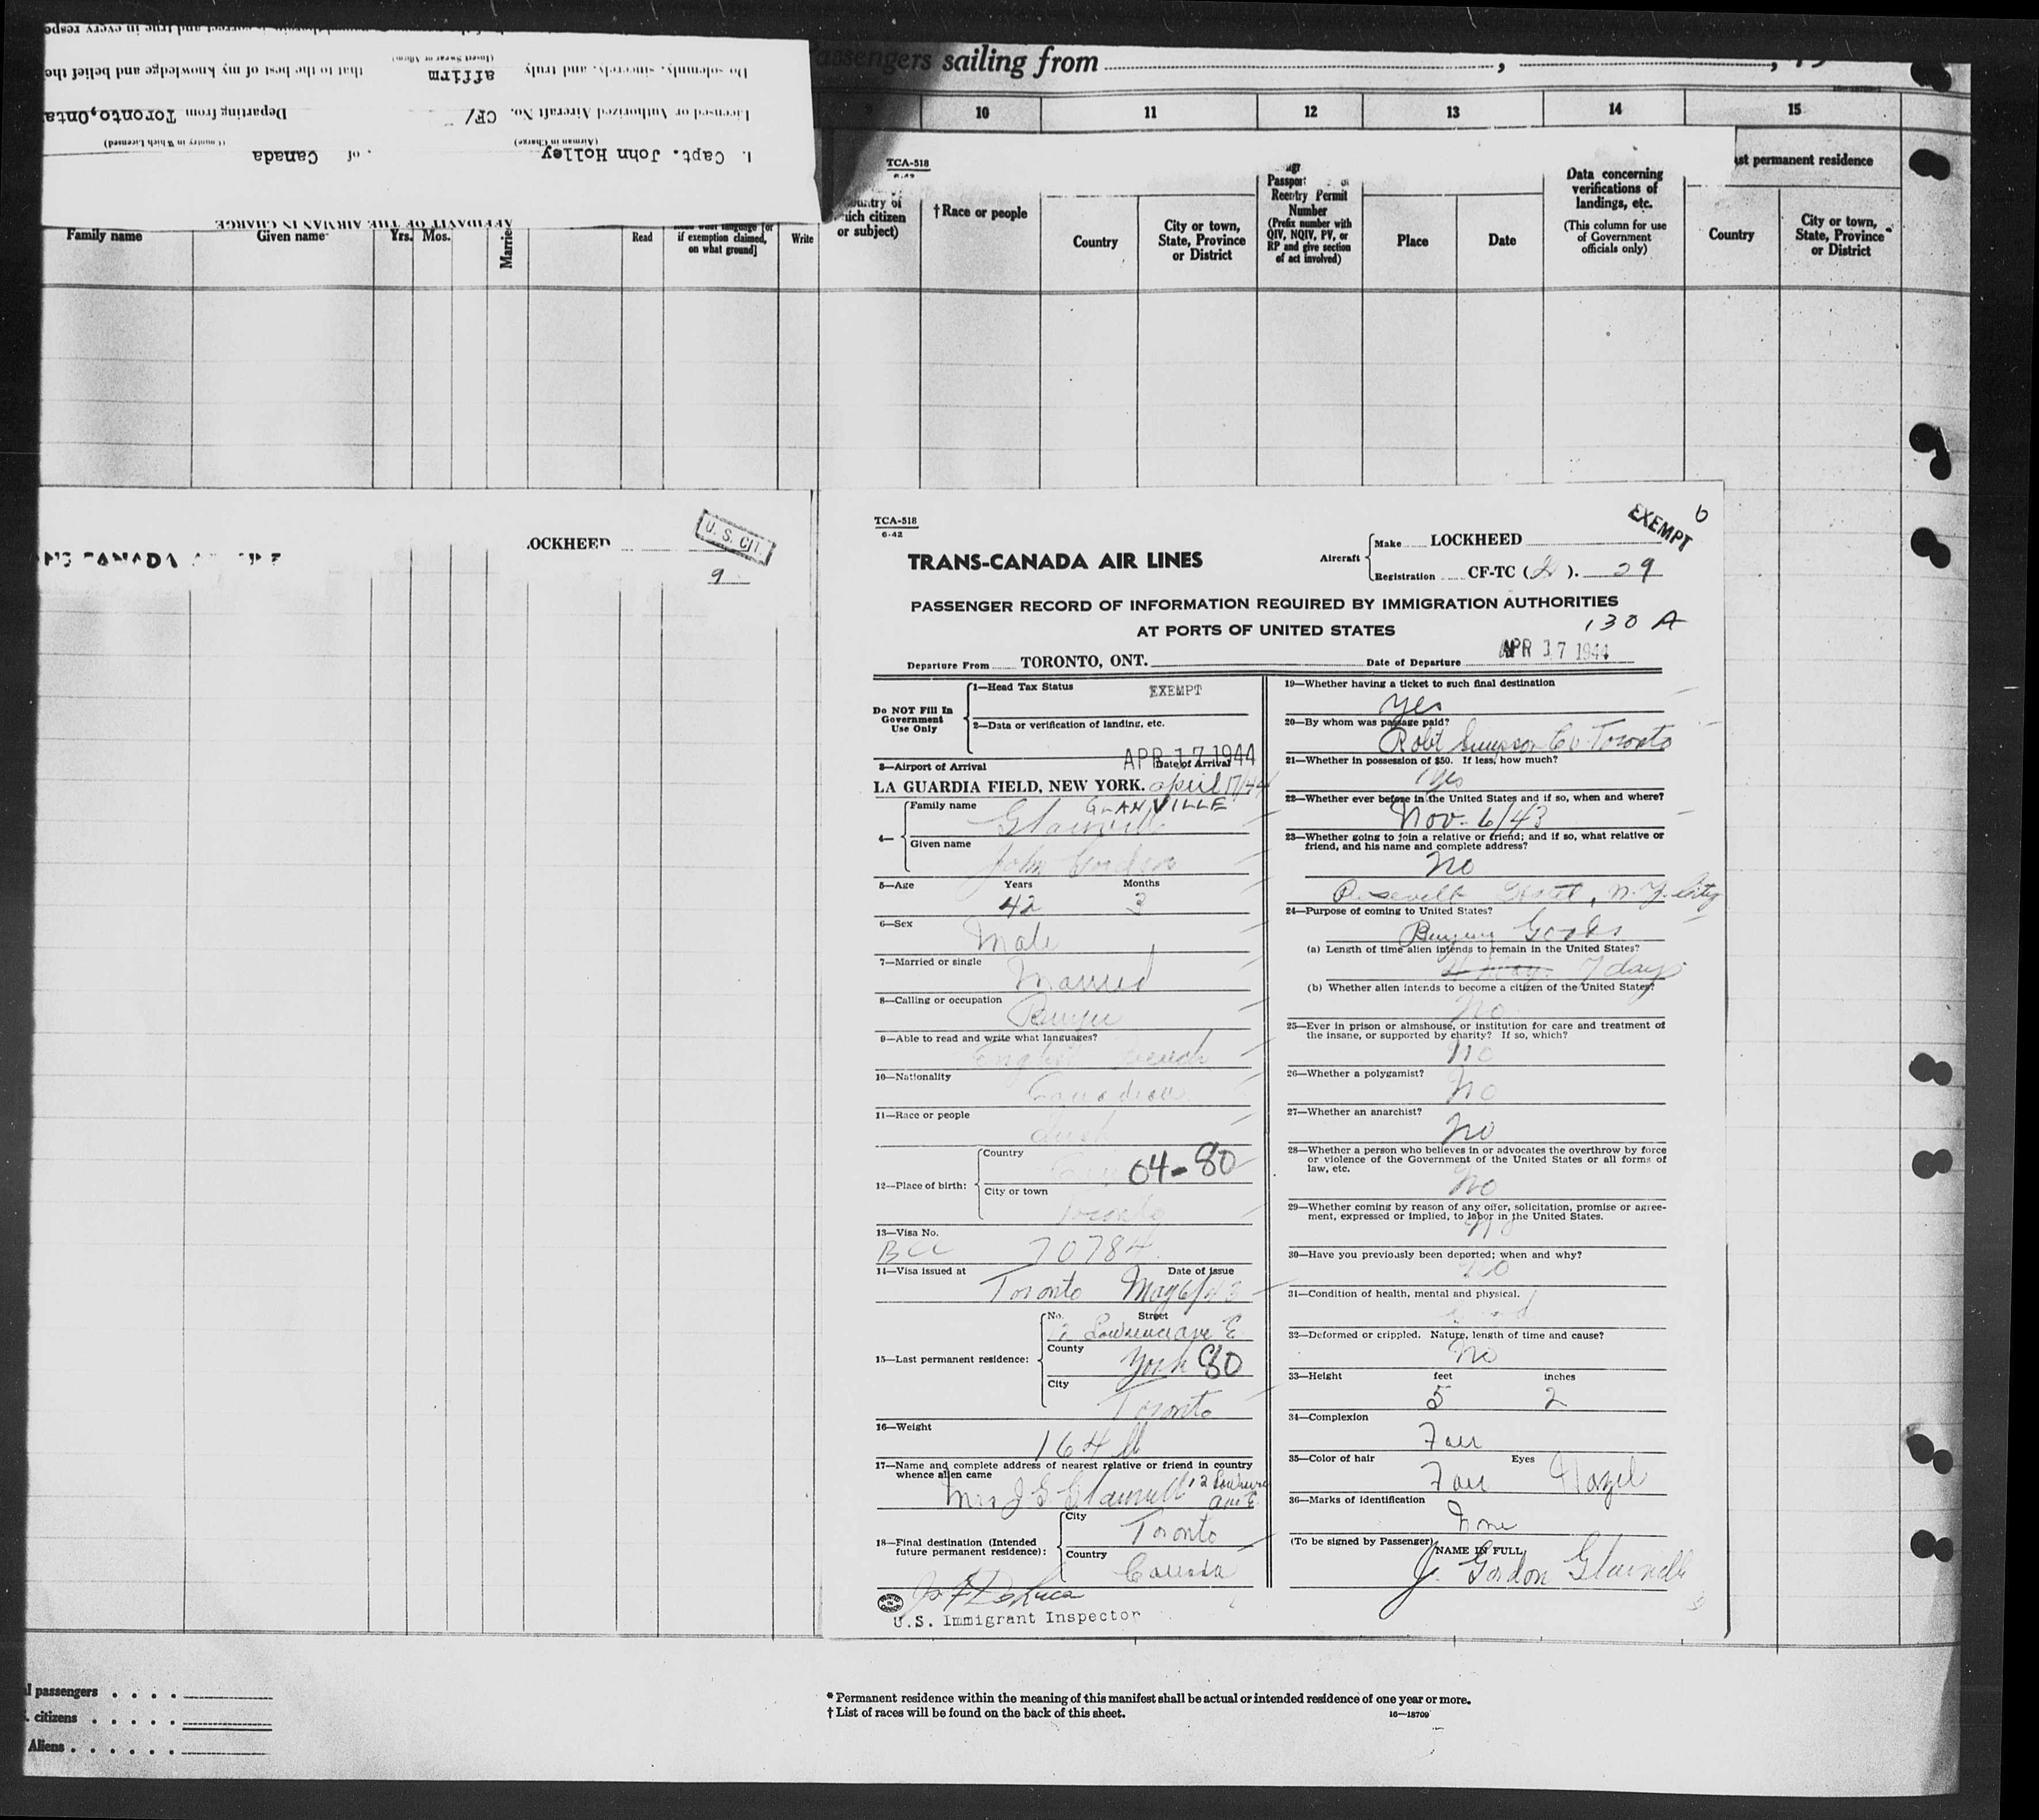 correct and true in every respe
Do solemnly, sincerely, and truly affirm that to the best of my knowledge and belief the
(Insert Swear or Affirm)
Licensed or Authorized Aircraft No. CF/ Departing from Toronto, Onta
(Airman in Charge) (Country in Which Licensed)
I, Capt. John Holley of Canada
AFFIDAVIT OF THE AIRMAN IN CHARGE
Passengers sailing from , , 19
10 11 12 13 14 15
TCA-518
6-42
Family name Given name Yrs. Mos. Married Read
if exemption claimed, on what ground] Write
country of which citizen or subject)
†Race or people
Country
City or town, State, Province or District
Passport or Reentry Permit Number
(Prefix number with QIV, NQIV, PV, or RP and give section of act involved)
Place Date
Data concerning verifications of landings, etc.
(This column for use of Government officials only)
st permanent residence
Country
City or town, State, Province or District
LOCKHEED
U. S. CIT.
9
TCA-518
6-42
EXEMPT 6
TRANS-CANADA AIR LINES
Aircraft Make LOCKHEED
Registration CF-TC ( ). 29
PASSENGER RECORD OF INFORMATION REQUIRED BY IMMIGRATION AUTHORITIES
AT PORTS OF UNITED STATES
130 A
Departure From TORONTO, ONT. Date of Departure APR 17 1944
Do NOT Fill In Government Use Only
1—Head Tax Status EXEMPT
2—Data or verification of landing, etc.
APR 17 1944
3—Airport of Arrival Date of Arrival
LA GUARDIA FIELD, NEW YORK. April 17/44
4— Family name Glanville GLANVILLE
Given name John Gordon
5—Age Years 42 Months 3
6—Sex Male
7—Married or single Married
8—Calling or occupation Buyer
9—Able to read and write what languages?
English French
10—Nationality Canadian
11—Race or people
12—Place of birth: Country 04-80
City or town Toronto
13—Visa No.
BCC 70784
14—Visa issued at Date of issue
Toronto May 6/43
15—Last permanent residence: No. Street
12 Lawrence Ave E
County York 80
City Toronto
16—Weight
164 lb
17—Name and complete address of nearest relative or friend in country
whence alien came
Mrs J G Glanville 12 Lawrence Ave E
18—Final destination (Intended future permanent residence): City Toronto
Country Canada
U.S. Immigrant Inspector
19—Whether having a ticket to such final destination
Yes
20—By whom was passage paid?
Robt Simpson Co Toronto
21—Whether in possession of $50. If less, how much?
Yes
22—Whether ever before in the United States and if so, when and where?
Nov. 6/43
23—Whether going to join a relative or friend; and if so, what relative or
friend, and his name and complete address?
No
Roosevelt Hotel, N.Y. City
24—Purpose of coming to United States?
Buying Goods
(a) Length of time alien intends to remain in the United States?
7 days
(b) Whether alien intends to become a citizen of the United States?
No
25—Ever in prison or almshouse, or institution for care and treatment of
the insane, or supported by charity? If so, which?
No
26—Whether a polygamist?
No
27—Whether an anarchist?
No
28—Whether a person who believes in or advocates the overthrow by force
or violence of the Government of the United States or all forms of
law, etc.
No
29—Whether coming by reason of any offer, solicitation, promise or agree-
ment, expressed or implied, to labor in the United States.
No
30—Have you previously been deported; when and why?
No
31—Condition of health, mental and physical.
Good
32—Deformed or crippled. Nature, length of time and cause?
No
33—Height feet 5 inches 2
34—Complexion
Fair
35—Color of hair Fair Eyes Hazel
36—Marks of identification
None
(To be signed by Passenger) NAME IN FULL
J. Gordon Glanville
l passengers . . . .
. citizens . . . . .
Aliens . . . . . .
* Permanent residence within the meaning of this manifest shall be actual or intended residence of one year or more.
† List of races will be found on the back of this sheet. 16—18709